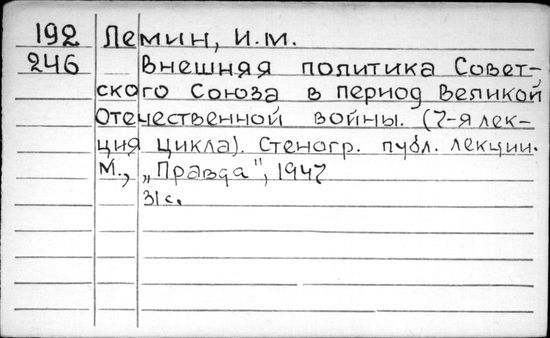 192 Лемин, И.М.
246 Внешняя политика Совет-
ского Союза в период Великой
Отечественной войны. (7-я лек-
ция цикла). Стеногр. публ. лекции.
М., „Правда", 1947
31 с.